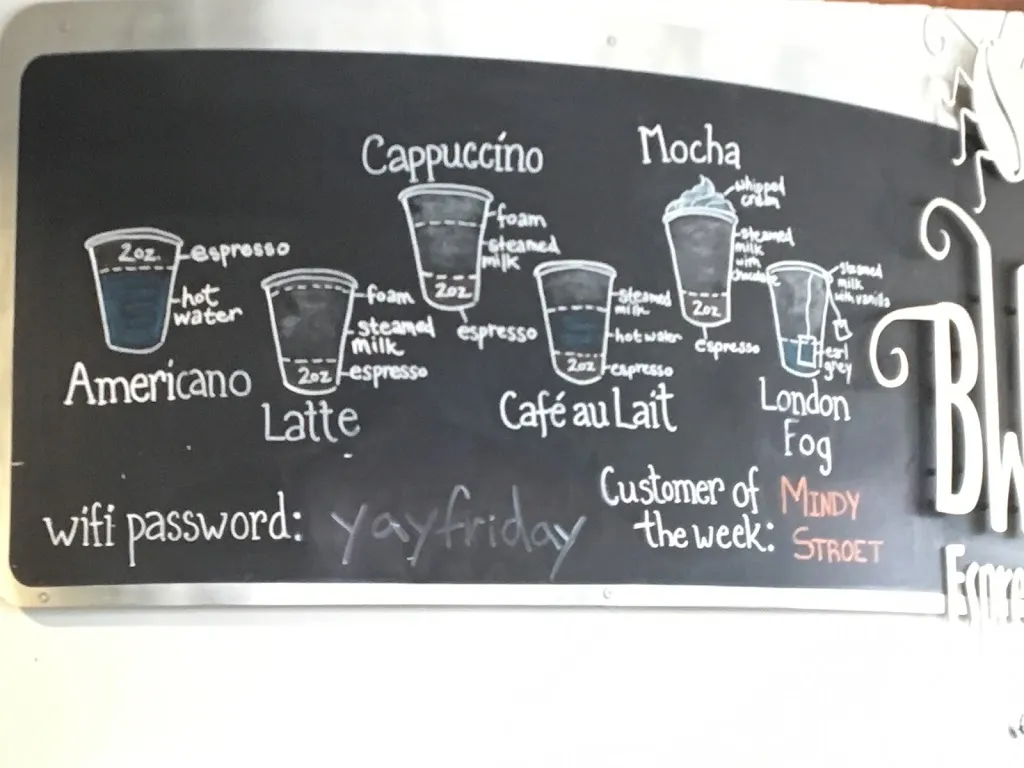 Cappuccino
foam
steamed
milk
2oz.
espresso
Mocha
whipped
cream
steamed
milk
with
chocolate
2oz
espresso
2oz.
espresso
hot
water
Americano
foam
steamed
milk
2oz
espresso
Latte
steamed
milk
hot water
2oz
espresso
Café au Lait
steamed
milk
with vanilla
earl
grey
London
Fog
wifi password: yayfriday
Customer of MINDY
the week: STROET